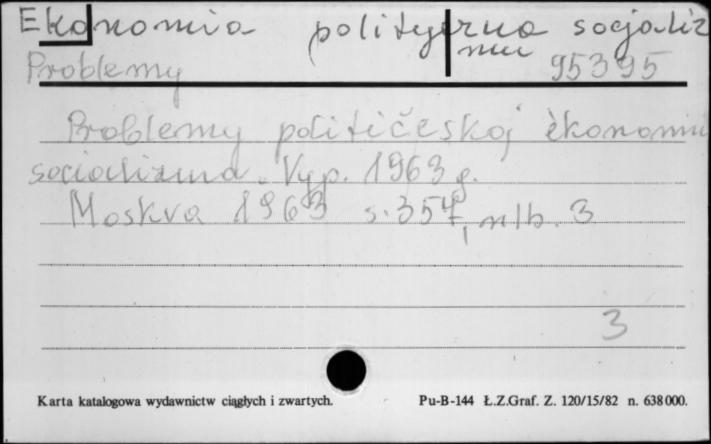 Ekonomia polityczna socjaliz
mu
Problemy 95395
Problemy političeskoj èkonomii
socializma. Vyp. 1963 g.
Moskva 1963 s. 357, nlb. 3
3
Karta katalogowa wydawnictw ciągłych i zwartych. Pu-B-144 Ł.Z.Graf. Z. 120/15/82 n. 638000.